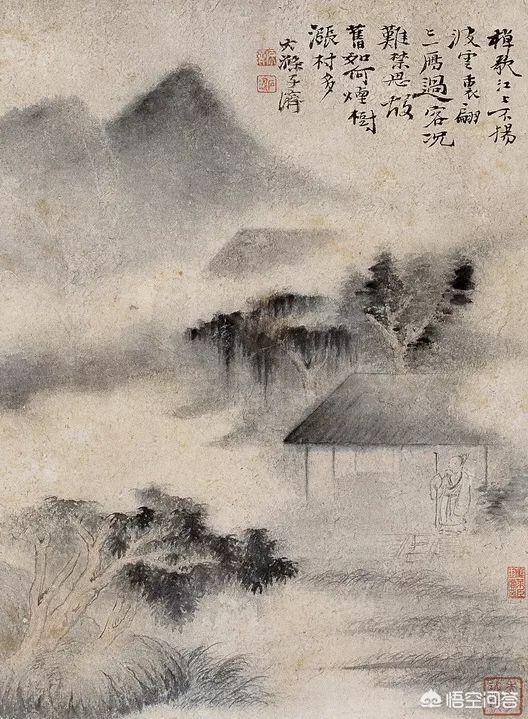 棹歌江上不揚
波雲裏翩
〻雁過客況
難禁思故
舊如何煙樹
漲村多
大滌子濟
悟空问答